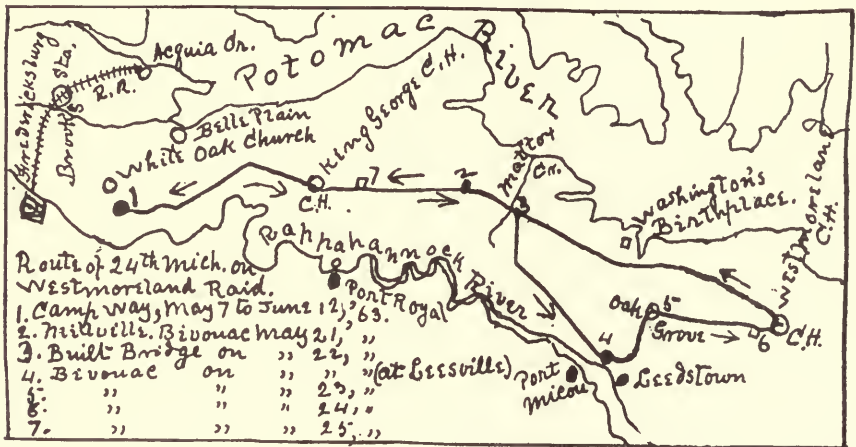 Potomac River
Acquia Cr.
Fredericksburg
Brooks Sta.
R.R.
Belle Plain
White Oak Church
King George C.H.
C.H.
1
7
2
Mattox Cr.
3
Washington's
Birthplace.
Westmoreland C.H.
Rappahannock River
Port Royal
Oak Grove
5
6
C.H.
4
Leedstown
Port
Micou
Route of 24th Mich. on
Westmoreland Raid.
1. Camp Way, May 7 to June 12, '63.
2. Millville. Bivouac May 21, "
3. Built Bridge on " 22, "
4. Bivouac on " " " (at Leesville)
5. " " " 23, "
6. " " " 24, "
7. " " " 25, "